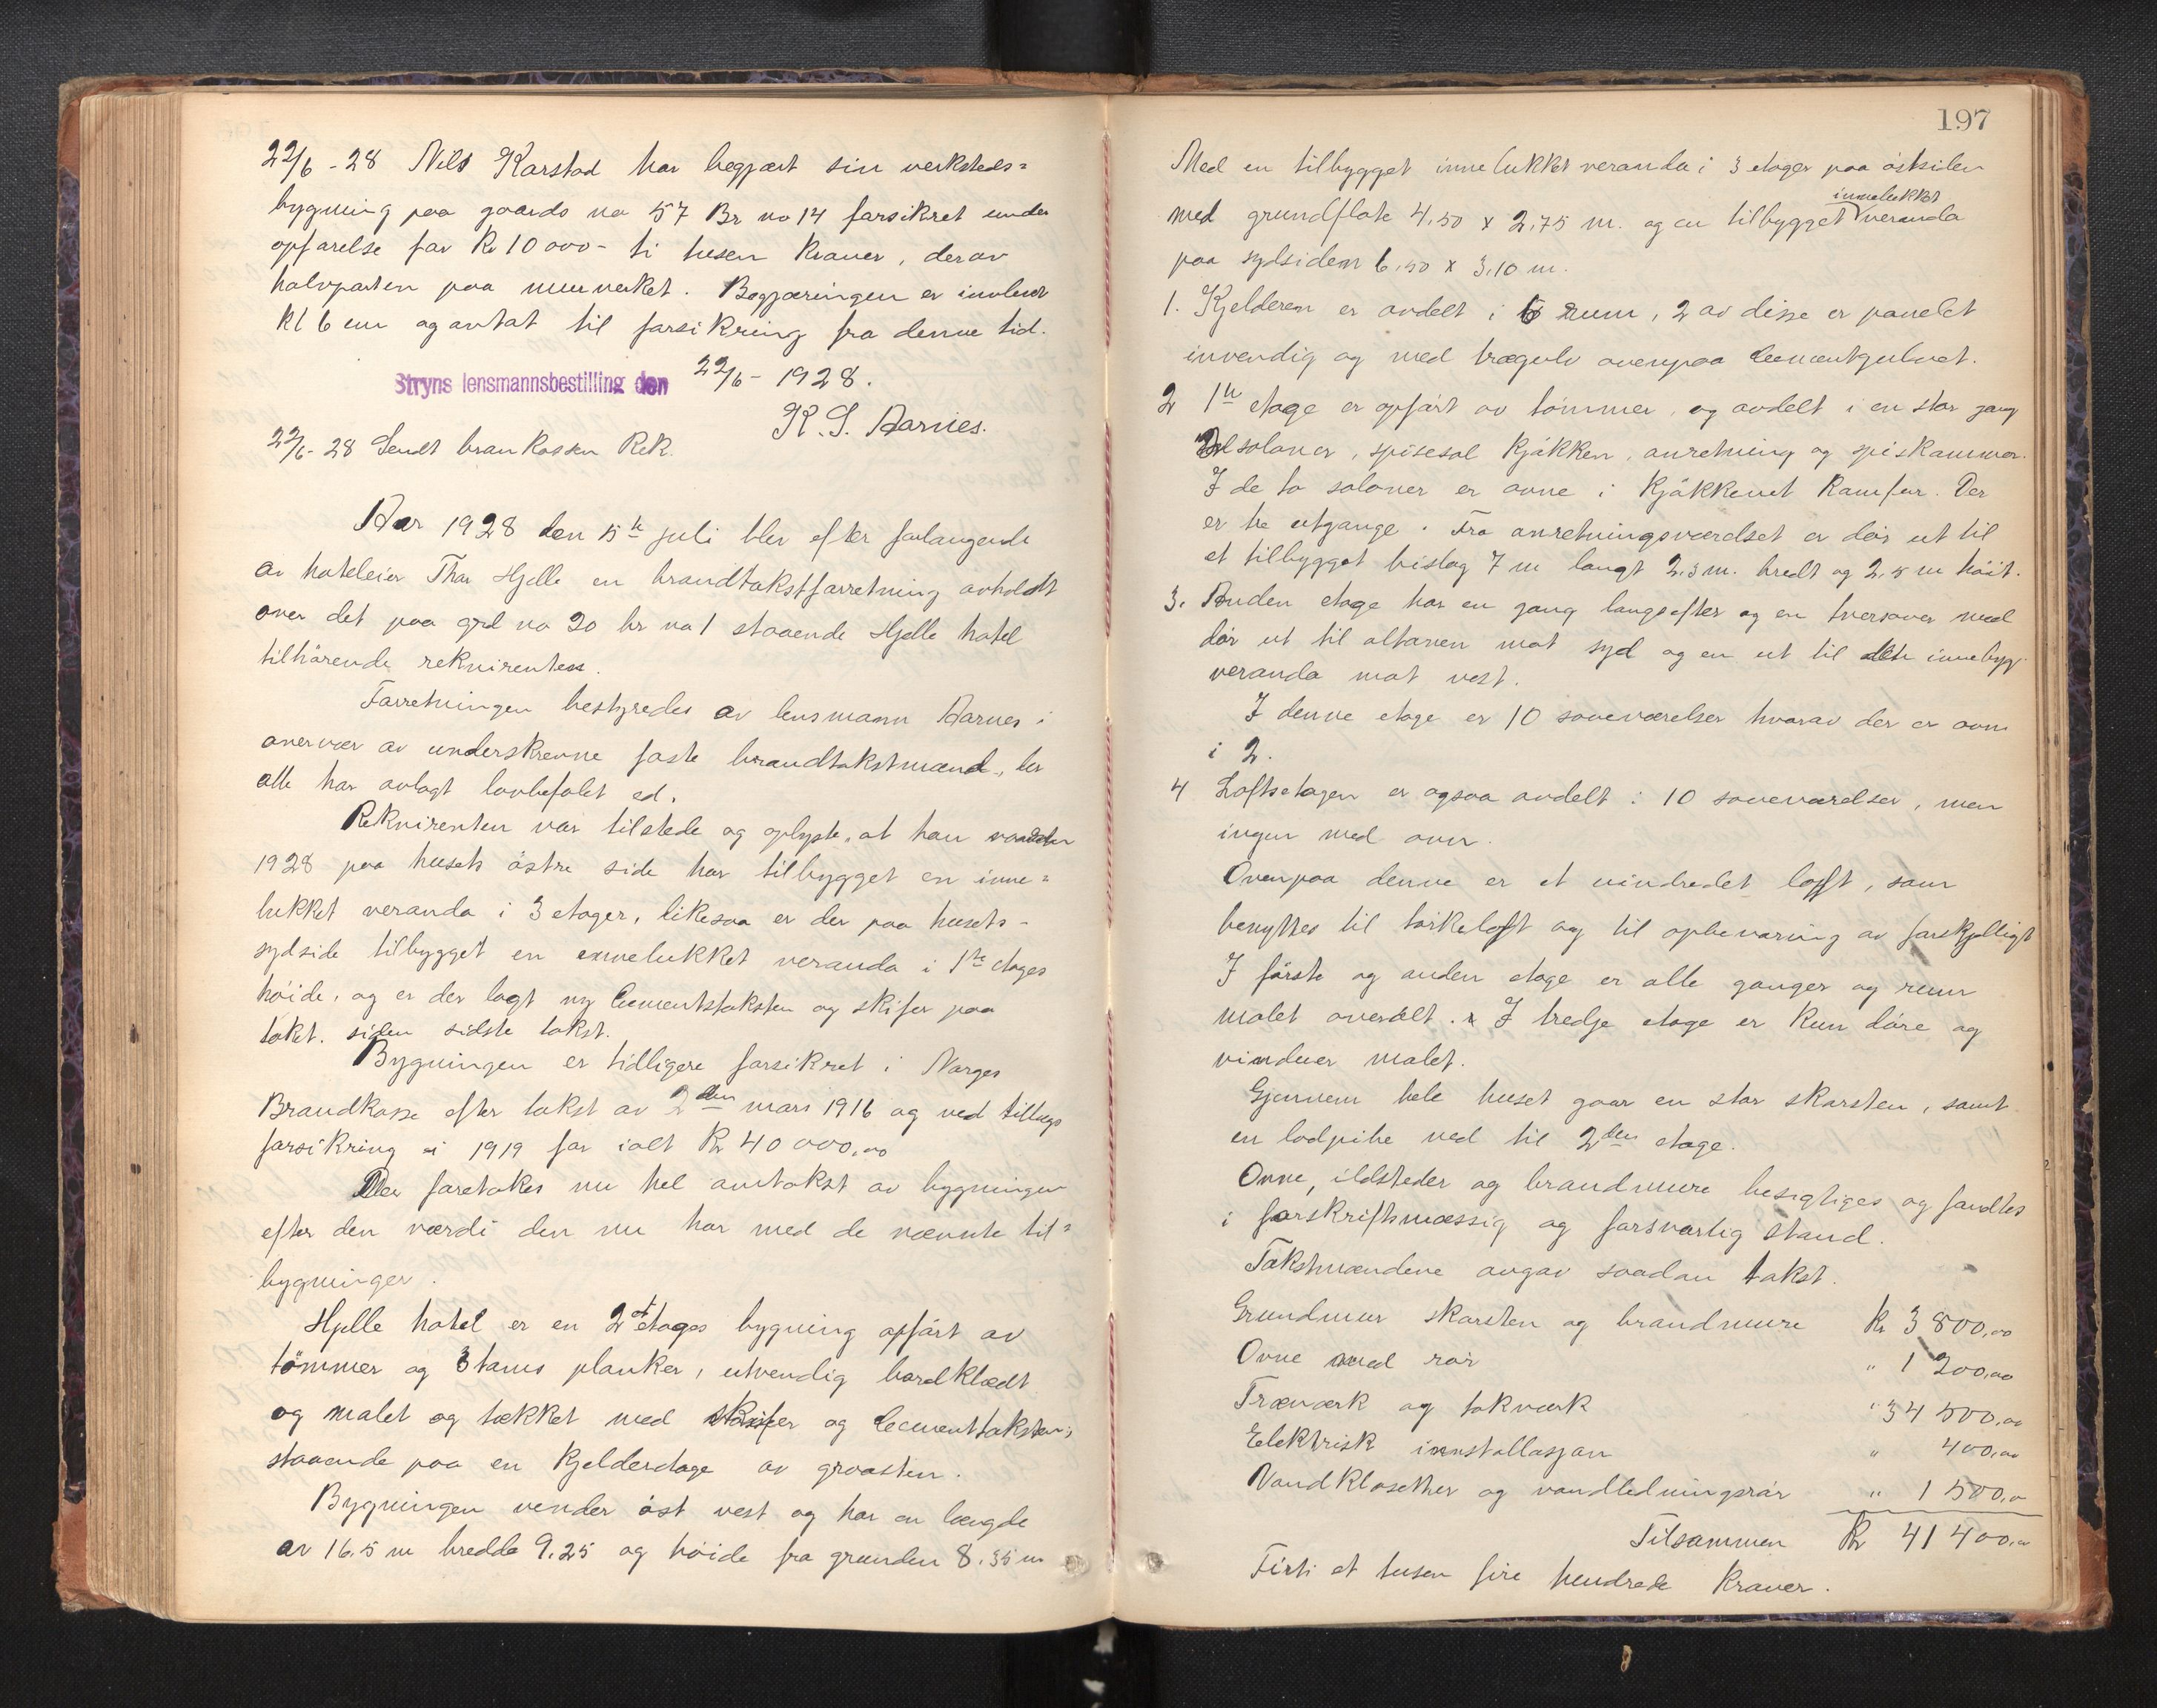 22/6 - 28 Nils Karstad har begjært sin verksteds=
bygning paa gaards no 57 Br no 14 forsikret under
opførelse for Kr 10 000 - ti tusen kroner, derav
halvparten paa murverket. Begjæringen er innlevert
kl 6 em og antat til forsikring fra denne tid.
Stryns lensmannsbestilling den 22/6 - 1928.
K. S. Aarnes.
22/6 - 28 Sendt brankassen Rek.
Aar 1928 den 5te juli blev efter forlangende
av hoteleier Thor Hjelle en brandtakstforretning avholdt
over det paa grd no 20 br no 1 staaende Hjelle hotel
tilhörende rekvirenten.
Forretningen bestyredes av lensmann Aarnes i
overvær av underskrevne faste brandtakstmænd, der
alle har avlagt lovbefalet ed.
Rekvirenten var tilstede og oplyste, at han
1928 paa husets östre side har tilbygget en inne=
lukket veranda i 3 etager, likesaa er der paa husets-
sydside tilbygget en innelukket veranda i 1ste etages
höide, og er der lagt ny Cementtaksten og skifer paa
taket. siden sidste takst.
Bygningen er tidligere forsikret i Norges
Brandkasse efter takst av 2den mars 1916 og ved tillægs
forsikring i 1919 for ialt Kr 40 000,00
Der foretokes nu hel omtakst av bygningen
efter den værdi den nu har med de nævnte til=
bygninger.
Hjelle hotel er en 2 etages bygning opfört av
tömmer og 3 toms planker, utvendig bordklædt
og malet og tækket med skifer og Cementtaksten,
staaende paa en Kjelderetage av graasten.
Bygningen vender öst vest og har en længde
av 16.5 m bredde 9.25 og höide fra grunden 8.35 m
197
Med en tilbygget innelukket veranda i 3 etager paa östsiden
innelukket
med grundflate 4,50 x 2,75 m. og en tilbygget veranda
paa sydsiden 6,50 x 3,10 m.
1. Kjelderen er avdelt i 6 rum, 2 av disse er panelet
invendig og med trægulv ovenpaa Cementgulvet.
2 1ste etage er opfört av tömmer, og avdelt i en stor gang
2 saloner, spisesal Kjökken, anretning og spiskammer.
I de to saloner er ovne i Kjökkenet Komfur. Der
er tre utgange. Fra anretningsværelset er dör ut til
et tilbygget bislag 7 m langt 2.3 m. bredt og 2,5 m höit.
3. Anden etage har en gang langsefter og en tversover med
dör ut til altanen mot syd og en ut til den innebyg.
veranda mot vest.
I denne etage er 10 soveværelser hvorav der er ovn
i 2.
4 Loftsetagen er ogsaa avdelt i 10 soveværelser, men
ingen med ovn.
Ovenpaa denne er et uindredet loft, som
benyttes til törkeloft og til opbevaring av forskjelligt
I förste og anden etage er alle ganger og rum
malet overalt. I tredje etage er Kun döre og
vinduer malet.
Gjennem hele huset gaar en stor skorsten, samt
en lodpibe ned til 2den etage.
Ovne, ildsteder og brandmure besigtiges og fandtes
i forskriftsmæssig og forsvarlig stand.
Takstmændene avgav saadan takst.
Grundmur skorsten og brandmure Kr 3 800,00
Ovne med rör " 1 200,00
Træværk og takværk " 34 500,00
Elektrisk innstallasjon " 400,00
Vandklosetter og vandledningsrör " 1 500,00
Tilsammen Kr 41 400,00
Firti et tusen fire hundrede Kroner.